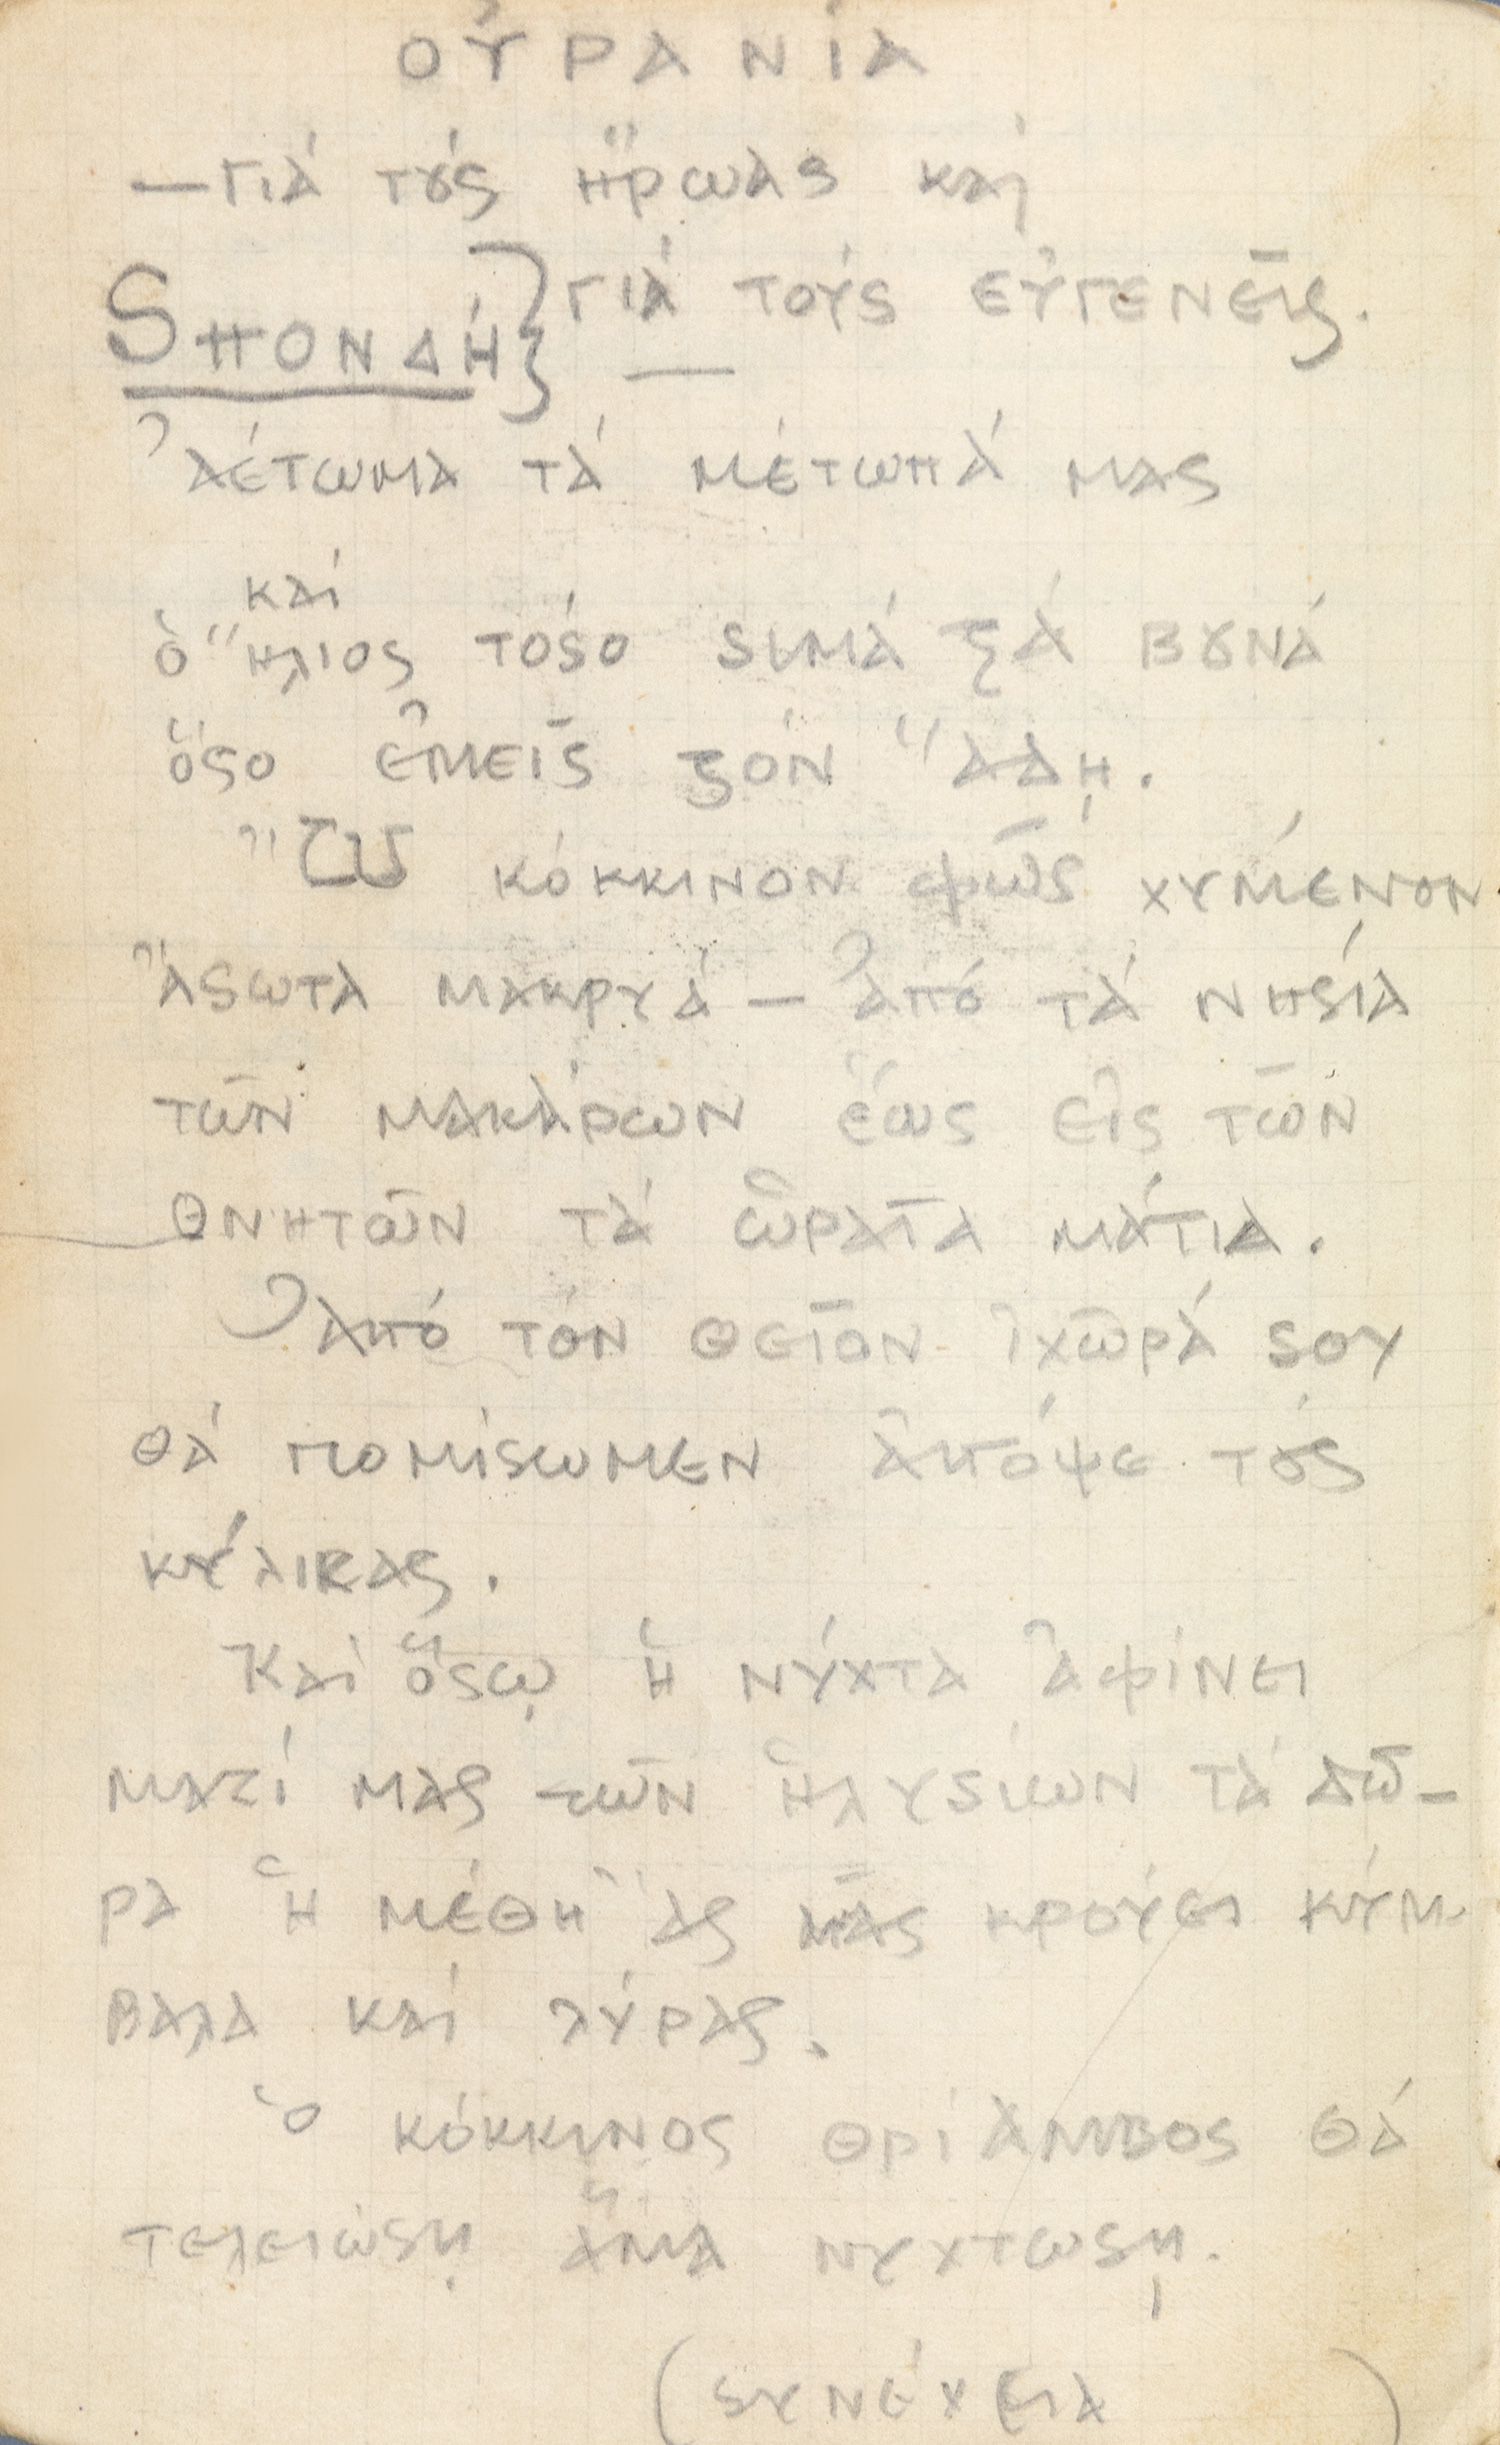 ΟΥ̓ΡΑΝΊΑ
— Γιά τούς ἥρωας καί
Σπονδή} γιά τούς εὐγενεῖς.
—
Ἀέτωμα τά μέτωπά μας
καί
ὁ ἥλιος τόσο σιμά στά βουνά
ὅσο ἐμεῖς στόν Ἅδη.
Ὤ κόκκινον φῶς χυμένον
ἄσωτα μακρυά — ἀπό τά νησιά
τῶν μακάρων ἕως εἰς τῶν
θνητῶν τά ὡραῖα μάτια.
Ἀπό τόν θεῖον ἰχῶρά σου
θά γιομίσωμεν ἀπόψε τούς
κύλικας.
Καί ὅσῳ ἡ νύχτα ἀφίνει
μαζί μας τῶν Ἠλυσίων τά δῶ-
ρα ἡ μέθη ἄς μᾶς κρούει κύμ-
βαλα καί λύρας.
Ὁ κόκκινος θρίαμβος θά
τελειώσῃ ἅμα νυχτώσῃ.
(συνέχεια )